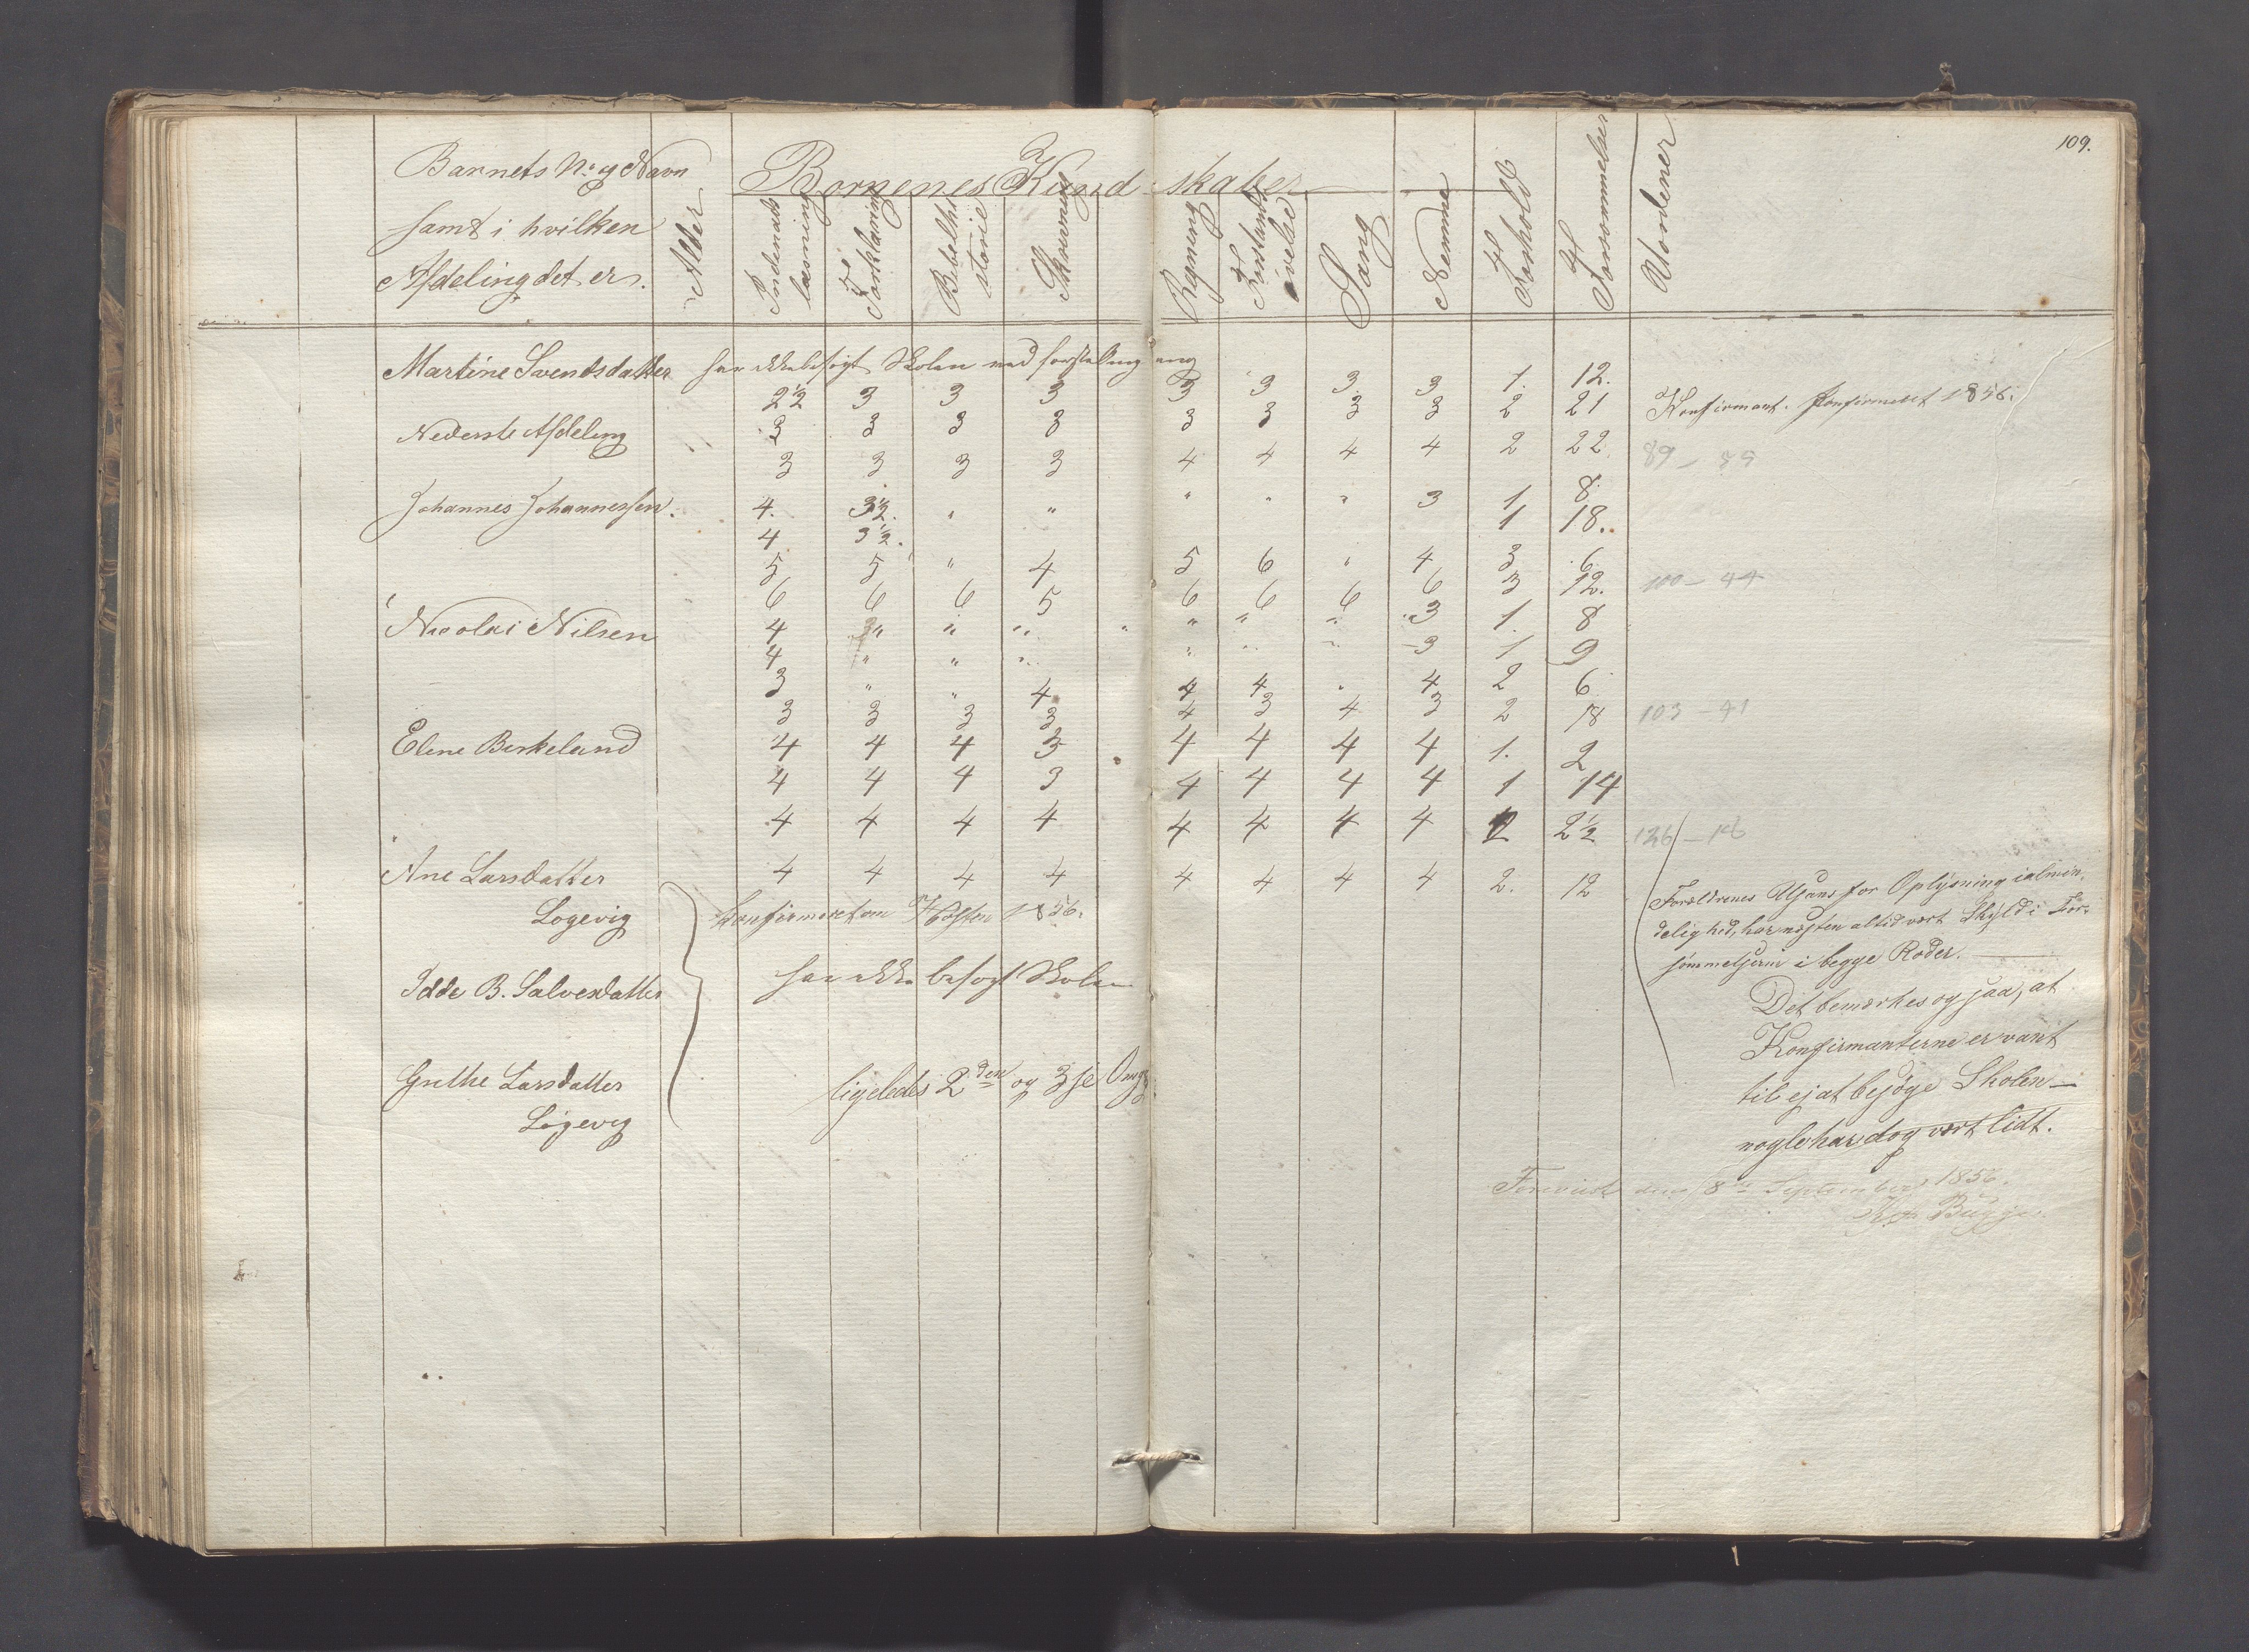 109.
Barnets No og Navn
samt i hvilken
Afdeling det er.
Alder
Børnenes Kundskaber
Indenads læsning
Forklaring
Bibelhistorie
Skrivning
Regning
Forstands øvelse
Sang
Nemme
Forhold
Forsømmelser
Methoder
Martine Svendsdatter har ikke besøgt Skolen
2½ 3 3 3 3 3 3 3 1. 12.
Nederste Afdeling 3 3 3 3 3 3 3 3 2 21 Konfirmant. Konfirmeret 1856.
3 3 3 3 4 4 4 4 2 22. 89 - 55
Johannes Johannessen. 4. 3½. " " " " " 3 1 8.
4 3½. 1 18.
5 5 " 4 5 6 " 4 3 6.
6 6 6 5 6 6 6 6 3 12. 100 - 44
Nicolai Nilsen 4 " " " " " " " 3 1. 8
4 " " " " " " 3 1 9
3 " " 4 4 4 " 4 2 6
3 3 3 3 4 3 4 3 2 18 103 - 41
Elene Birkeland 4 4 4 3 4 4 4 4 1. 2
4 4 4 3 4 4 4 4 1 14
4 4 4 4 4 4 4 4 2 2½ 126 - 18
Ane Larsdatter 4 4 4 4 4 4 4 4 2. 12
Logevig Konfirmeret om Høsten 1856.
Idde B. Salvesdatter har ikke besøgt Skolen
Grethe Larsdatter ligeledes 2den og 3je Omg.
Løgevig
Forældrenes Afsans for Oplysning i almin-
delighed, har næsten altid vært Skyld i For-
sømmelserne i begge Roder.
Det bemærkes og saa, at
Konfirmanterne er vant
til ej at besøge Skolen —
nogle har dog vært lidt.
Foreviist den 8de September 1856.
Bugge